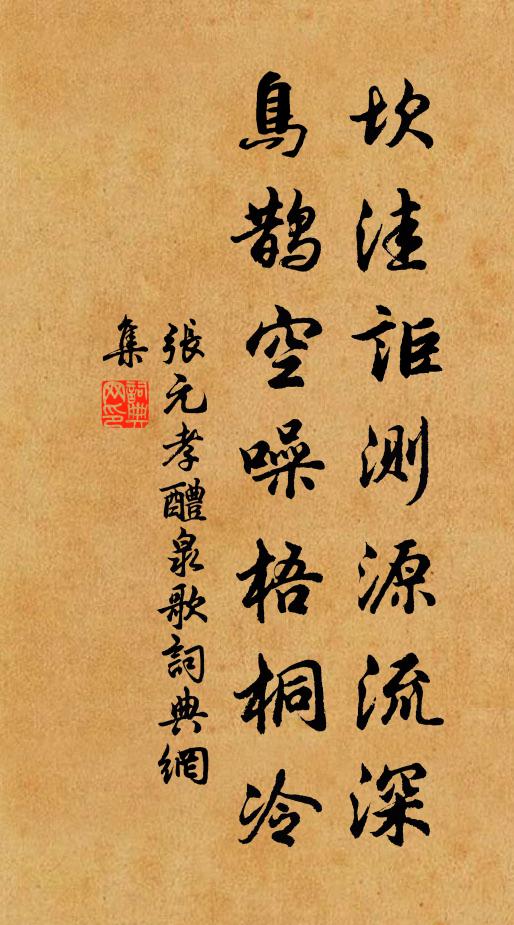 坎洼詎測源流深
鳥鵲空噪梧桐冷
張元孝醴泉歌詞典網
集
詞典
网印